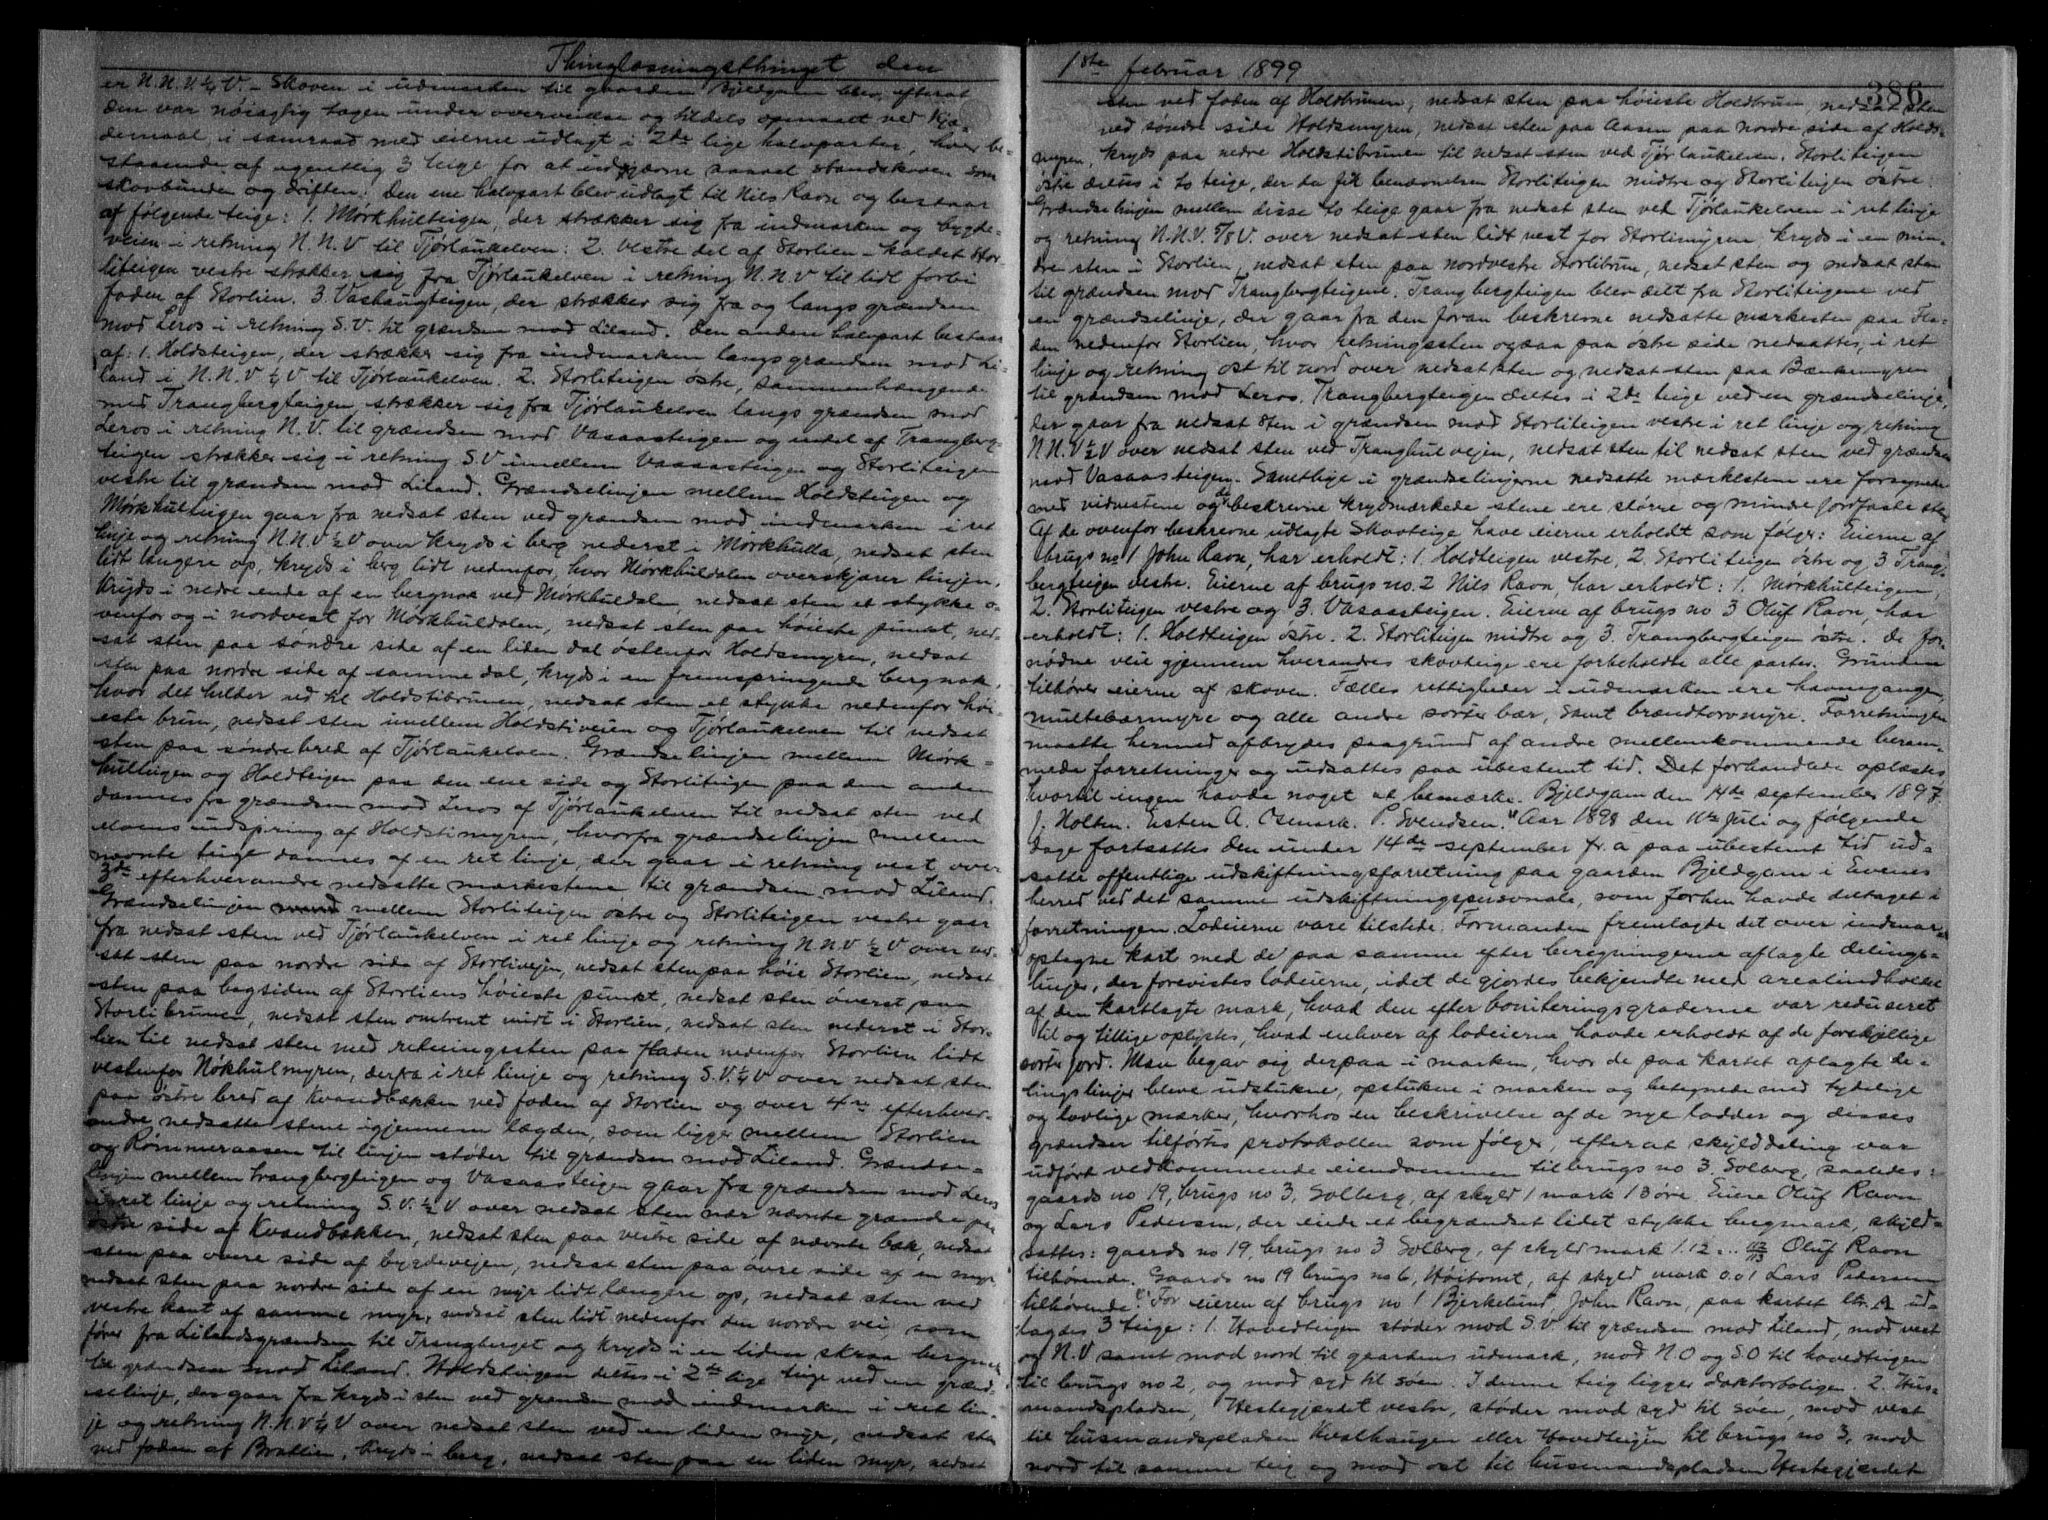 Thinglæsningsthinget den
er N.N.V.¼V. – Skoven i udmarken til gaarden Bjeldgam blev, efterat
den var nöiagtig tagen under overveielse og tildels opmaalt ved Kjæ-
demaal, i samraad med eierne udlagt i 2de lige halvparter, hver be-
staaende af egentlig 3 teige for at udjævne saavel standskoven som
skovbunden og driften. Den ene halvpart blev udlagt til Nils Ravn og bestaar
af følgende teige: 1. Mørkhulteigen, der strækker sig fra indmarken og bygde-
veien i retning N.N.V til Tjørlaukelven: 2. Vestre del af Storlien – kaldet Stor-
liteigen vestre strækker sig fra Tjørlaukelven i retning N.N.V til lidt forbi
foden af Storlien. 3. Vashaugteigen, der strækker sig fra og langs grændsen
mod Leros i retning S.V. til grændsen mod Liland. Den anden halvpart bestaar
af: 1. Holdsteigen, der strækker sig fra indmarken langs grændsen mod Li-
land i N.N.V ¼V til Tjørlaukelven. 2. Storliteigen östre, sammenhængende
med Trangbergteigen strækker sig fra Tjørlaukelven langs grændsen mod
Leros i retning N.V. til grændsen mod Vasaasteigen og endel af Trangberg-
teigen strækker sig i retning S.V imellem Vasaasteigen og Storliteigen
vestre til grændsen mod Liland. Grændselinjen mellem Holdsteigen og
Mørkhulteigen gaar fra nedsat sten ved grændsen mod indmarken i ret
linje og retning N.N.V ½V over kryds i berg nederst i Mørkhulla, nedsat sten
lidt længere op, kryds i berg lidt nedenfor, hvor Mørkhuldalen overskjærer linjen,
kryds i nedre ende af en bergnak ved Mørkhuldalen, nedsat sten et stykke o-
venfor og i nordvest for Mørkhuldalen, nedsat sten paa höieste punkt, ned-
sat sten paa søndre side af en liden dal östenfor Holdsmyren, nedsat
sten paa nordre side af samme dal, kryds i en fremspringende bergnak,
hvor det helder ned til Holdstibrunen, nedsat sten et stykke nedenfor höi-
este brun, nedsat sten imellem Holdstiveien og Tjørlaukelven til nedsat
sten paa søndre bred af Tjørlaukelven. Grændselinjen mellem Mørk-
hulteigen og Holdteigen paa den ene side og Storliteigen paa den anden
dannes fra grændsen mod Leros af Tjørlaukelven til nedsat sten ved
elvens udspring af Holdstimyren, hvorfra grændselinjen mellem
nævnte teige dannes af en ret linje, der gaar i retning vest over
3de efterhverandre nedsatte mærkestene til grændsen mod Liland.
Grændselinjen mellem Storliteigen östre og Storliteigen vestre gaar
fra nedsat sten ved Tjørlaukelven i ret linje og retning N.N.V ½V over ned-
sat sten paa nordre side af Storlivejen, nedsat sten paa höie Storlien, nedsat
sten paa bagsiden af Storliens höieste punkt, nedsat sten överst paa
Storlibrunen, nedsat sten omtrent midt i Storlien, nedsat sten nederst i Stor-
lien til nedsat sten med retningssten paa Fladen nedenfor Storlien lidt
vestenfor Nökhulmyren, derfra i ret linje og retning S.V.¼V over nedsat sten
paa östre bred af Kvandbækken ved foden af Storlien og over 4re efterhver-
andre nedsatte stene igjennem lægden, som ligger mellem Storlien
og Rømmeraasen til linjen støder til grændsen mod Liland. Grændse-
linjen mellem Trangbergteigen og Vasaasteigen gaar fra grændsen mod Leros
i ret linje og retning S.V.½V over nedsat sten nær nævnte grændse paa
östre side af Kvandbækken, nedsat sten paa vestre side af nævnte bæk, nedsat
sten paa övre side af bygdevejen, nedsat sten paa övre side af en myr,
nedsat sten paa nordre side af en myr lidt længere op, nedsat sten ved
vestre kant af samme myr, nedsat sten lidt nedenfor den nordre vei, som
fører fra Lilandsgrændsen til Trangberget og kryds i en liden skraa bergnak
til grændsen mod Liland. Holdsteigen deltes i 2de lige teige ved en grænd-
selinje, der gaar fra kryds i sten ved grændsen mod indmarken i ret lin-
je og retning N.N.V¼V over nedsat sten ved en liden myr, nedsat sten
ved foden af Bratlien, kryds i berg, nedsat sten paa en liden myr, nedsat
1ste februar 1899
386
sten ved foden af Holdbrunen, nedsat sten paa höieste Holdbrun, nedsat sten
ved søndre side Holdsmyren, nedsat sten paa Aasen paa nordre side af Holds-
myren, kryds paa nedre Holdstibrunen til nedsat sten ved Tjørlaukelven. Storliteigen
östre deltes i to teige, der da fik benævnelsen Storliteigen midtre og Storliteigen östre.
Grændselinjen mellem disse to teige gaar fra nedsat sten ved Tjørlaukelven i ret linje
og retning N.N.V. ⅞V. over nedsat sten lidt vest for Storlimyren, kryds i en min-
dre sten i Storlien, nedsat sten paa nordvestre Storlibrun, nedsat sten og nedsat sten
til grændsen mod Trangbergteigene. Trangbergteigen blev delt fra Storliteigene ved
en grændselinje, der gaar fra den foran beskrevne nedsatte mærkesten paa Fla-
den nedenfor Storlien, hvor retningssten ogsaa paa östre side nedsattes, i ret
linje og retning ost til nord over nedsat sten og nedsat sten paa Bænkemyren
til grændsen mod Leros. Trangbergteigen deltes i 2de teige ved en grændselinje,
der gaar fra nedsat sten i grændsen mod Storliteigen vestre i ret linje og retning
N.N.V½V over nedsat sten ved Tranghulvejen, nedsat sten til nedsat sten ved grændsen
mod Vasaasteigen. Samtlige i grændselinjerne nedsatte mærkestene ere forsynede
med vidnestene og de beskrevne krydsmærkede stene ere större og mindre jordfaste sten
Af de ovenfor beskrevne udlagte Skovteige have eierne erholdt som følger: Eierne af
brugs no 1 John Ravn, har erholdt: 1. Holdteigen vestre, 2. Storliteigen östre og 3 Trang-
bergteigen vestre. Eierne af brugs no. 2 Nils Ravn, har erholdt: 1. Mørkhulteigen,
2. Storliteigen vestre og 3. Vasaasteigen. Eierne af brugs no 3 Oluf Ravn, har
erholdt: 1. Holdteigen östre. 2. Storliteigen midtre og 3. Trangbergteigen östre. De for-
nødne veie gjennem hverandres skovteige ere forbeholdte alle parter. Grunden
tilhører eierne af skoven. Fælles rettigheder i udmarken ere havnegangen,
multebærmyre og alle andre sorter bær, samt brændtorvmyre. Forretningen
maatte hermed afbrydes paagrund af andre mellemkommende beram-
mede forretninger og udsattes paa ubestemt tid. Det forhandlede oplæstes,
hvortil ingen havde noget at bemærke. Bjeldgam den 14de september 1897.
J. Holten. Esten A. Osmark. P. Svendsen." Aar 1898 den 11te Juli og følgende
dage fortsattes den under 14de september f.a paa ubestemt tid ud-
satte offentlige udskiftningsforretning paa gaarden Bjeldgam i Evenes
herred ved det samme udskiftningspersonale, som forhen havde deltaget i
forretningen. Lodeierne vare tilstede. Formanden fremlagte det over indmarken
optagne kart med de paa samme efter beregningerne aflagte delings-
linjer, der forevistes lodeierne, idet de gjordes bekjendte med arealindholdet
af den kartlagte mark, hvad den efter boniteringsgraderne var reduseret
til og tillige oplystes, hvad enhver af lodeierne havde erholdt af de forskjellige
sorter jord. Man begav sig derpaa i marken, hvor de paa kartet aflagte de-
lingslinjer bleve udstukne, opstukne i marken og betegnede med tydelige
og lovlige mærker, hvorhos en beskrivelse af de nye lodder og disses
grændser tilførtes protokollen som følger, efterat skylddeling var
udført vedkommende eiendommen til brugs no 3. Solberg, saaledes:
gaards no 19, brugs no 3, Solberg, af skyld 1 mark 13 øre. Eiere Oluf Ravn
og Lars Pedersen, der eiede et begrændset lidet stykke bergmark, skyld-
sattes: gaards no 19, brugs no 3 Solberg, af skyld mark 1.12 ... 112/113 Oluf Ravn
tilhørende. Gaards no 19 brugs no 6, Höitomt, af skyld mark 0.01 Lars Pedersen
tilhørende." For eieren af brugs no 1 Bjerkelund, John Ravn, paa kartet ltr. A ud-
lagdes 3 teige: 1. Hovedteigen støder mod S.V til grændsen mod Liland, mod vest
og N.V samt mod nord til gaardens udmark, mod N.O og S.O til hovedteigen
til brugs no 2, og mod syd til søen. I denne teig ligger doktorboligen. 2. Hus-
mandspladsen, Hestegjærdet vestre, støder mod syd til søen, mod vest
til husmandspladsen Kvalhaugen eller Hovedteigen til brugs no 3, mod
nord til samme teig og mod ost til husmandspladsen Hestegjærdet